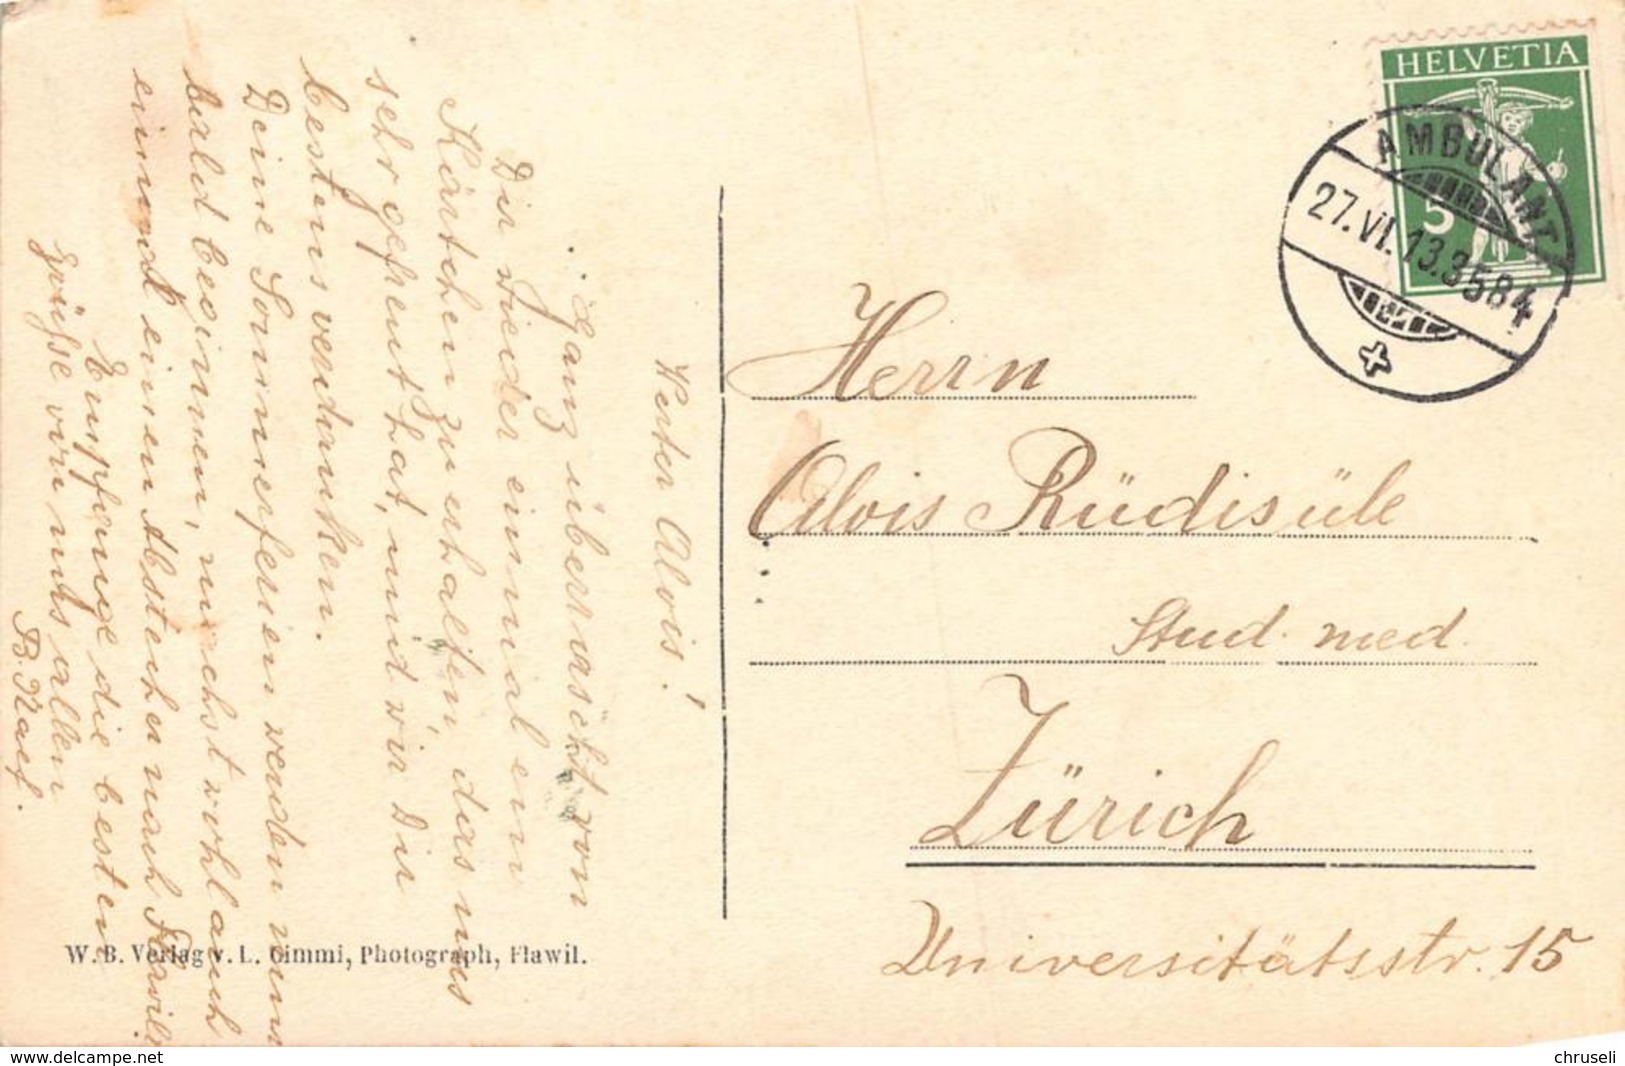 Werter Alois!
Ganz überrascht von
Dir wieder einmal ein
Kärtchen zu erhalten, das uns
sehr gefreut hat, und wir Dir
bestens verdanken.
Deine Sommerferien werden nun
bald beginnen, machst wohl auch
einmal einen Abstecher nach Flawil.
Empfange die besten
Grüsse von uns allen
B. Naef.
W. B. Verlag v. L. Gimmi, Photograph, Flawil.
HELVETIA
5
AMBULANT
27.VI.13.3584
Herrn
Alois Rüdisüle
Stud. med.
Zürich
Universitätsstr. 15
www.delcampe.net
chruseli